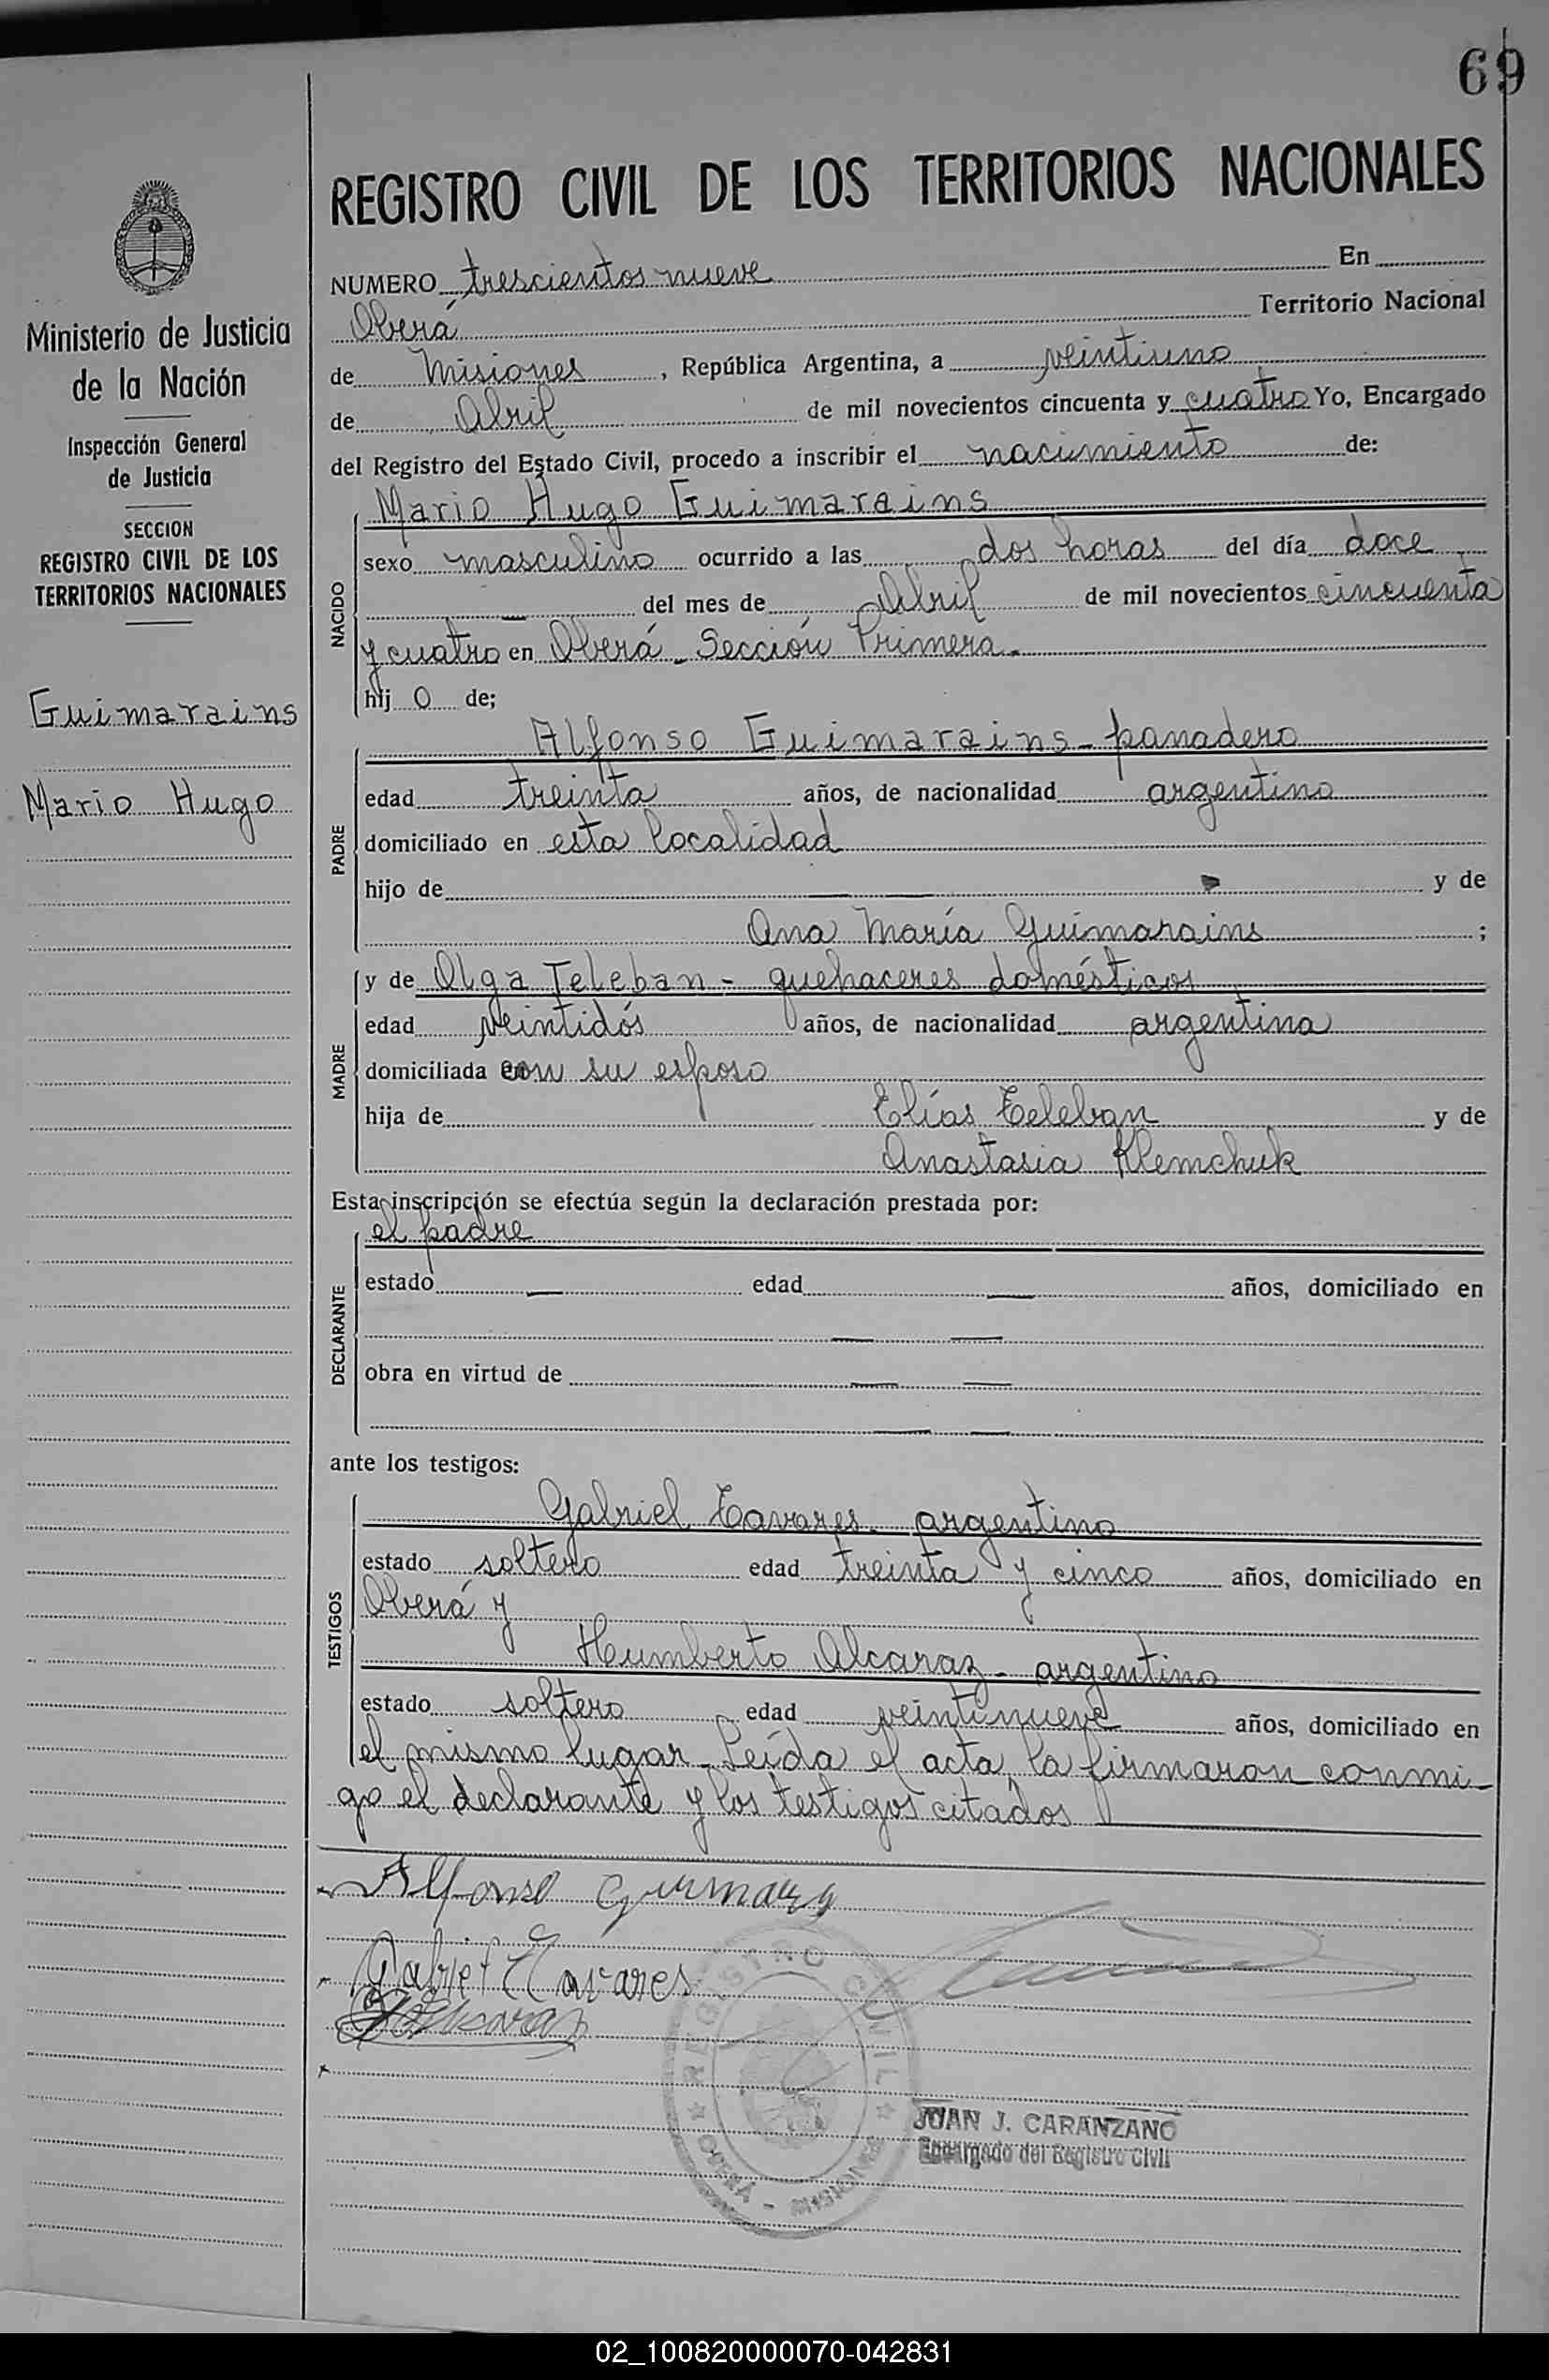 69
REGISTRO CIVIL DE LOS TERRITORIOS NACIONALES
Ministerio de Justicia
de la Nación
Inspección General
de Justicia
SECCION
REGISTRO CIVIL DE LOS
TERRITORIOS NACIONALES
Guimarains
Mario Hugo
NUMERO trescientos nueve En
Oberá Territorio Nacional
de Misiones, República Argentina, a veintiuno
de Abril de mil novecientos cincuenta y cuatro Yo, Encargado
del Registro del Estado Civil, procedo a inscribir el nacimiento de:
NACIDO
Mario Hugo Guimarains
sexo masculino ocurrido a las dos horas del día doce
del mes de Abril de mil novecientos cincuenta
y cuatro en Oberá - Sección Primera.
hij o de;
PADRE
Alfonso Guimarains - panadero
edad treinta años, de nacionalidad argentino
domiciliado en esta localidad
hijo de y de
Ana María Guimarains ;
MADRE
y de Olga Teleban - quehaceres domésticos
edad veintidós años, de nacionalidad argentina
domiciliada con su esposo
hija de Elías Teleban y de
Anastasia Klemchuk
Esta inscripción se efectúa según la declaración prestada por:
DECLARANTE
el padre
estado — edad — años, domiciliado en
— —
obra en virtud de — —
— —
ante los testigos:
TESTIGOS
Gabriel Tavares - argentino
estado soltero edad treinta y cinco años, domiciliado en
Oberá y
Humberto Alcaraz - argentino
estado soltero edad veintinueve años, domiciliado en
el mismo lugar - Leída el acta, la firmaron conmi-
go el declarante y los testigos citados
Alfonso
Gabriel Tavares
REGISTRO CIVIL
OBERÁ - MISIONES
JUAN J. CARANZANO
Encargado del Registro Civil
02_100820000070-042831